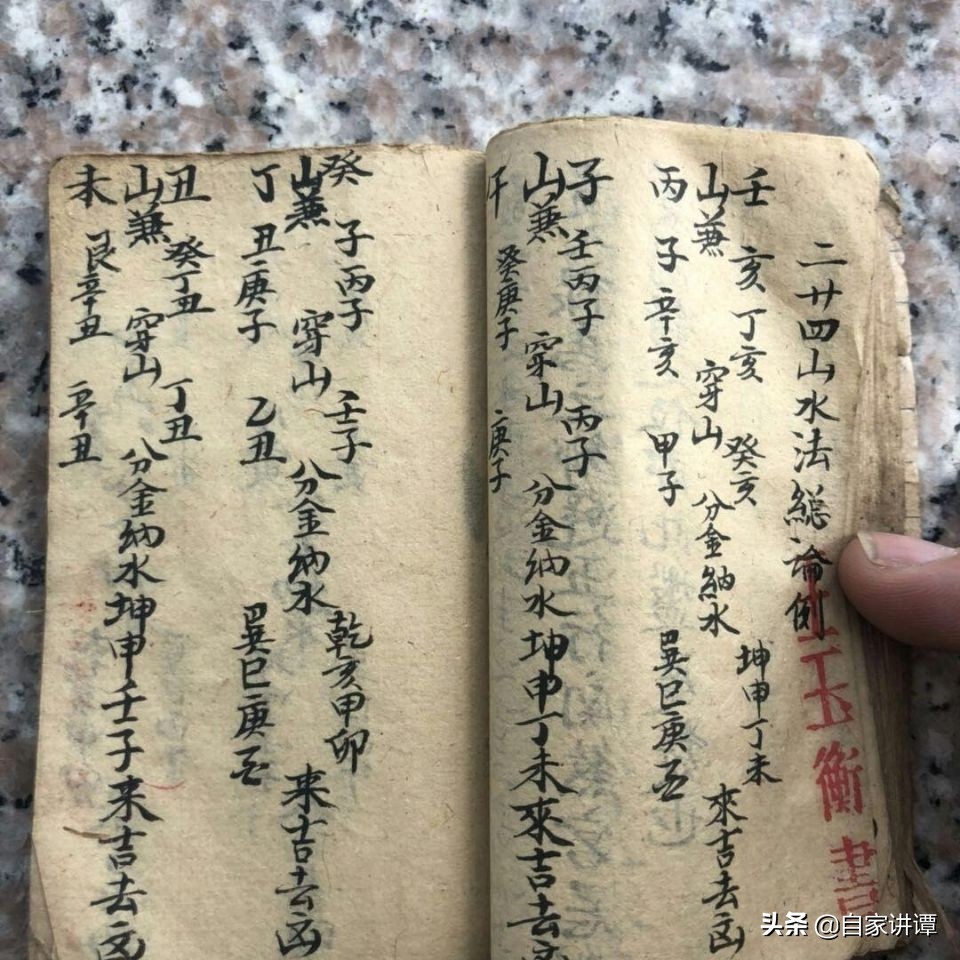 二廿四山水法總論例
王玉衡書
壬山兼丙 亥丁亥 子辛亥 穿山 癸亥 甲子 分金納水 坤申丁未 巽巳庚酉 來吉去凶
子山兼午 壬丙子 癸庚子 穿山 丙子 庚子 分金納水坤申丁未來吉去凶
癸山兼丁 子丙子 丑庚子 穿山 壬子 乙丑 分金納水 乾亥甲卯 巽巳庚酉 来吉去凶
丑山兼未 癸丁丑 艮辛丑 穿山 丁丑 辛丑 分金納水坤申壬子来吉去凶
头条 @自家讲谭